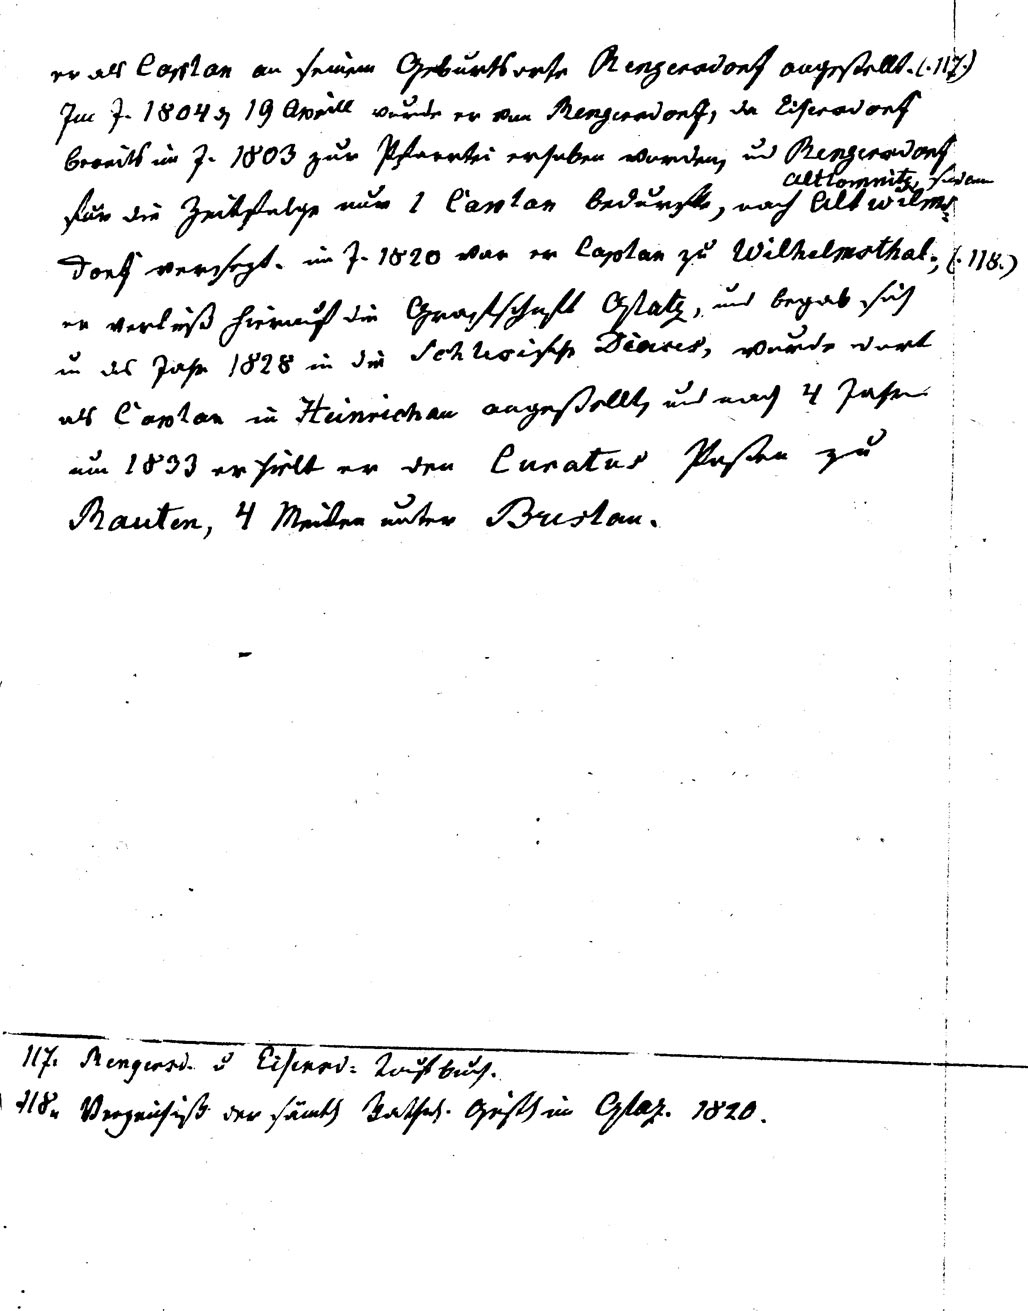 er als Caplan an seinem Geburtsorte Rengersdorf angestellt. (.117.)
Im J. 1804 d 19 Aprill wurde er von Rengersdorf, da Eisersdorf
bereits im J. 1803 zur Pfarrtei erhoben worden, und Rengersdorf
altlomnitz, sodann
für die Zeitfolge nur 1 Caplan bedurfte, nach Altwilms-
dorf versezt. im J. 1820 war er Caplan zu Wilhelmsthal; (.118.)
er verließ hierauf die Grafschaft Glatz, und begab sich
in das Jahr 1828 in die Schlesische Dioces, wurde dort
als Caplan in Heinrichau angestellt, und nach 4 Jahren
um 1833 erhielt er den Curatus Posten zu
Rauten, 4 Meilen unter Breslau.
117. Rengersd. u Eisersd: Taufbuch.
118. Verzeichniß der sämtl Kathol. Geistl im Glaz. 1820.